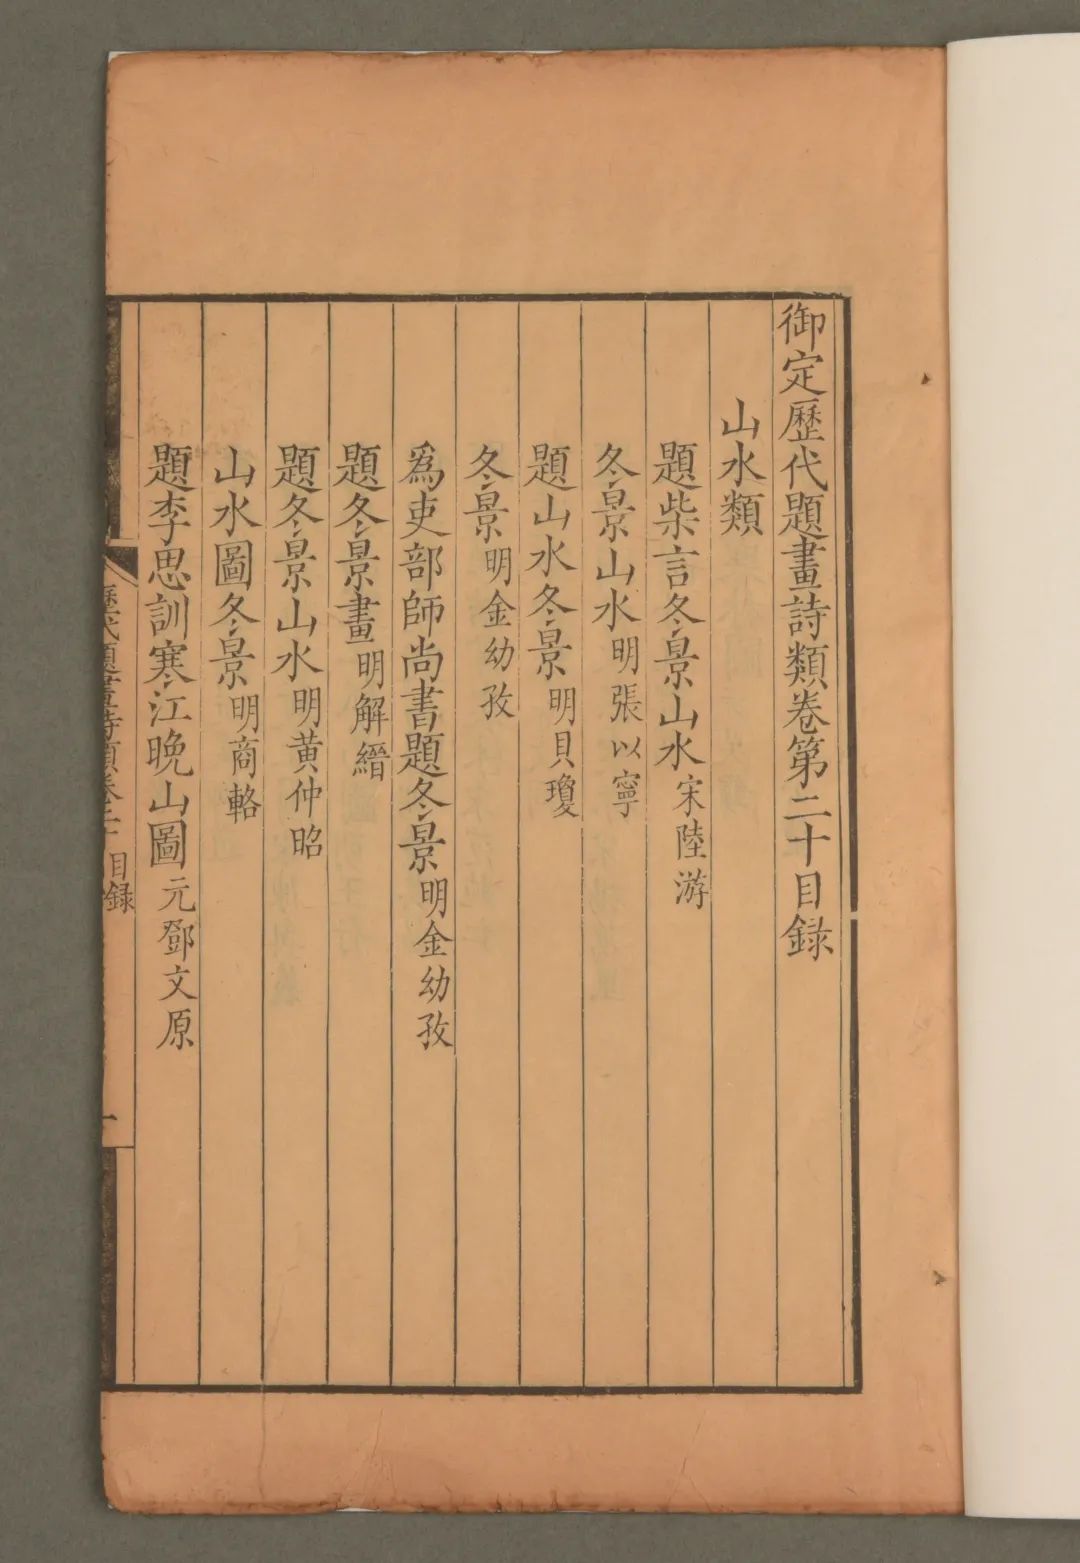 御定歷代題畫詩類卷第二十目錄
山水類
題柴言冬景山水 宋陸游
冬景山水 明張以寧
題山水冬景 明貝瓊
冬景 明金幼孜
爲吏部師尚書題冬景 明金幼孜
題冬景畫 明解縉
題冬景山水 明黃仲昭
山水圖冬景 明商輅
題李思訓寒江晚山圖 元鄧文原
歷代題畫詩類卷二十 目錄 一